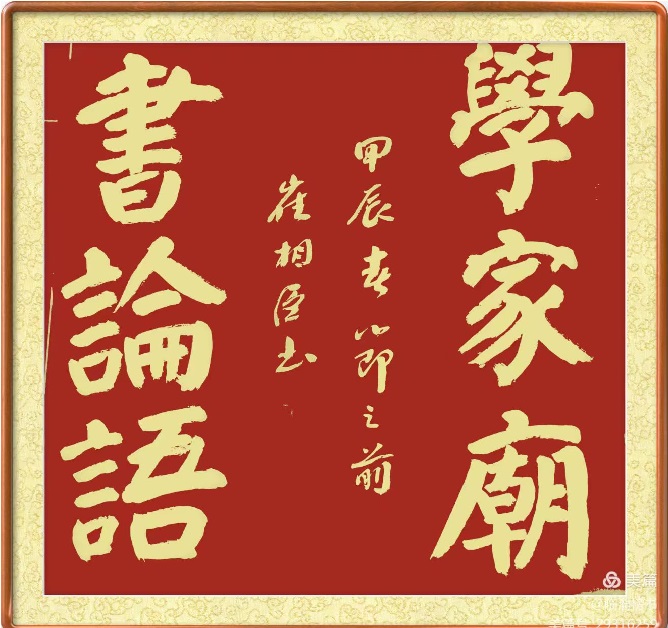 學家廟
甲辰春節之前
崔相臣书
書論語
美篇